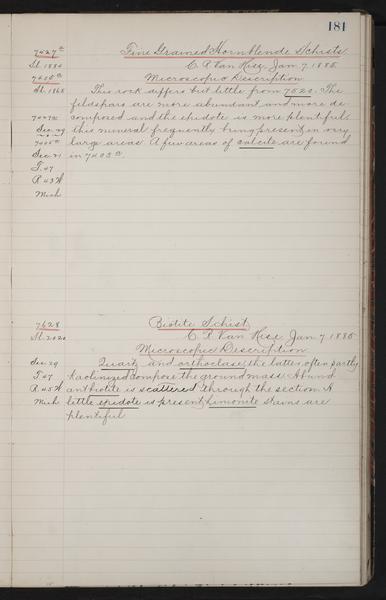 181
7427a Fine Grained Hornblende Schists.
Sl. 1884 C. R. Van Hise, Jan. 7, 1885
7405a Microscopic Description
Sl. 1868 This rock differs but little from 7520. The
feldspars are more abundant and more de-
7427a composed and the epidote is more plentiful,
Sec. 29 this mineral frequently being present in very
7405a large areas. A few areas of calcite are found
Sec. 21 in 7405a.
T. 47
R 43 W
Mich
7628 Biotite Schist
Sl. 2020 C. R. Van Hise, Jan. 7, 1885
Microscopic Description
Sec. 29 Quartz and orthoclase, the latter often partly
T. 47 kaolinized compose the ground mass. Abund
R. 45 W ant biotite is scattered through the section. A
Mich little epidote is present, limonite stains are
plentiful